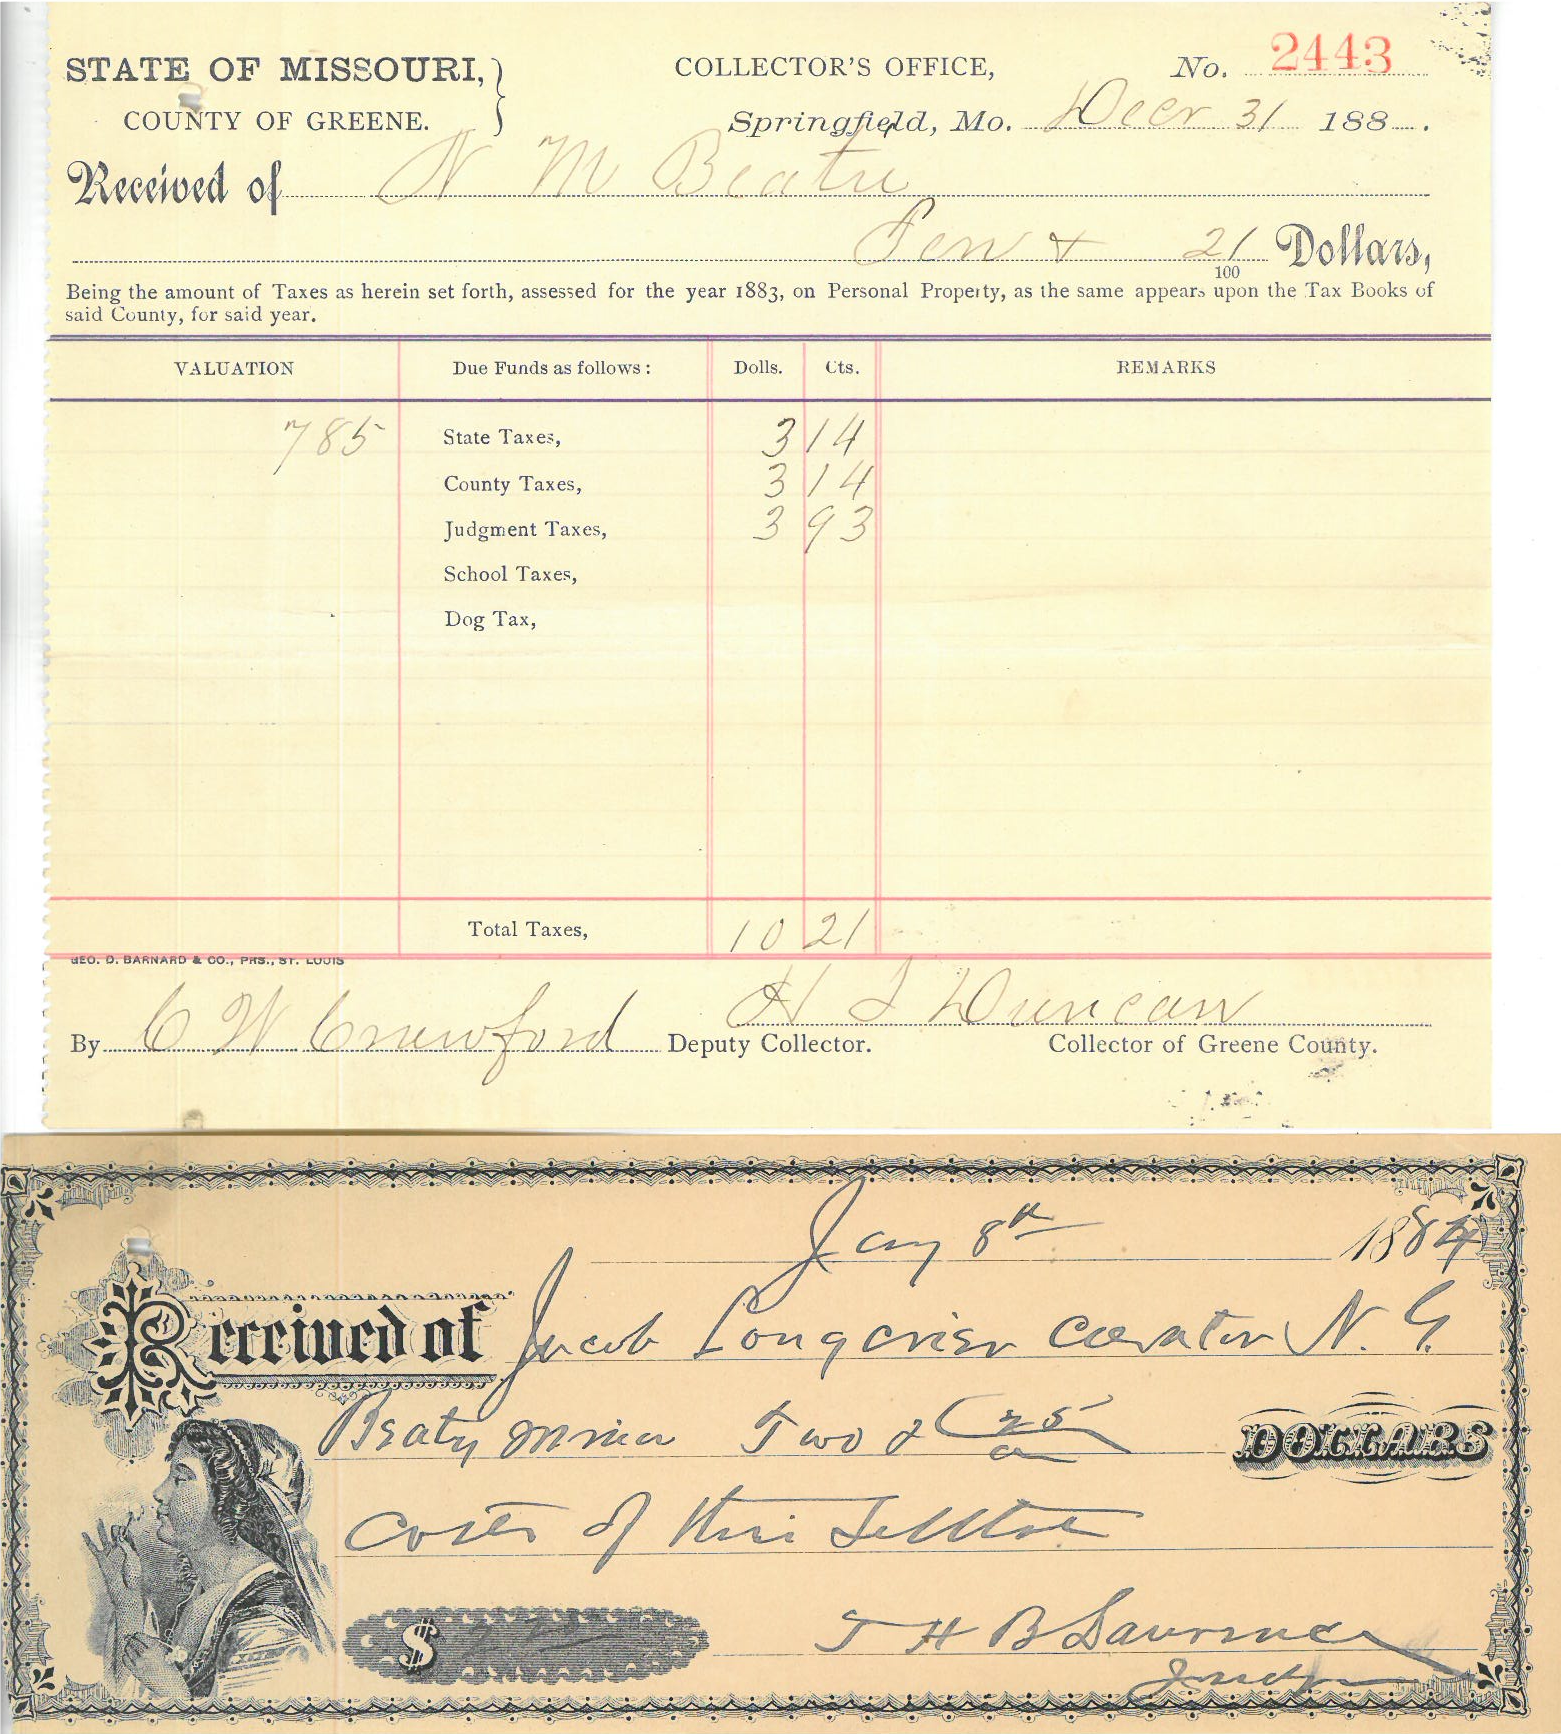 STATE OF MISSOURI,
COUNTY OF GREENE.
COLLECTOR'S OFFICE,
No. 2443
Springfield, Mo. Decr 31 188 .
Received of N M Beatie
Ten & 21/100 Dollars,
Being the amount of Taxes as herein set forth, assessed for the year 1883, on Personal Property, as the same appears upon the Tax Books of
said County, for said year.
VALUATION Due Funds as follows: Dolls. Cts. REMARKS
785 State Taxes, 3 14
County Taxes, 3 14
Judgment Taxes, 3 93
School Taxes,
Dog Tax,
Total Taxes, 10 21
GEO. D. BARNARD & CO., PRS., ST. LOUIS
H J Duncan
By C W Crawford Deputy Collector. Collector of Greene County.
Jany 8th 1884
Received of Jacob Longcrier Curator N. G.
Beaty minor Two & 25 DOLLARS
Costs of this Settlmt
$ T H B Lawrence